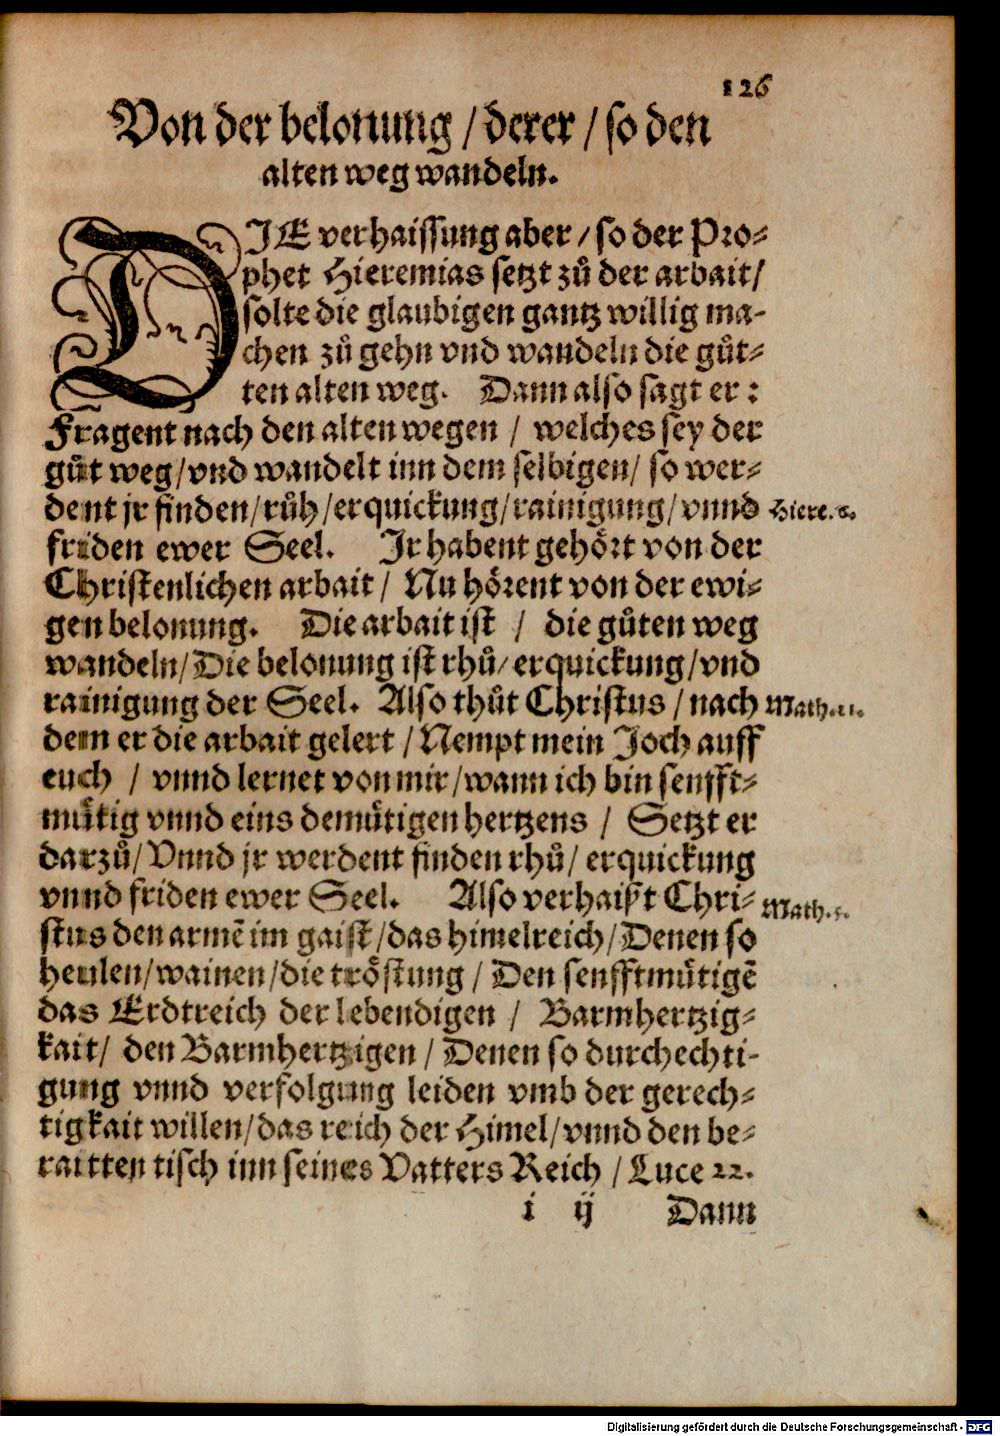 126
Von der belonung / derer / so den
alten weg wandeln.
DIE verhaissung aber / so der Pro-
phet Hieremias setzt zů der arbait /
solte die glaubigen gantz willig ma-
chen zů gehn vnd wandeln die gůt-
ten alten weg. Dann also sagt er:
Fragent nach den alten wegen / welches sey der
gůt weg / vnd wandelt inn dem selbigen / so wer-
dent jr finden / růh / erquickung / rainigung / vnnd
Hiere. 6.
friden ewer Seel. Jr habent gehört von der
Christenlichen arbait / Nu hörent von der ewi-
gen belonung. Die arbait ist / die gůten weg
wandeln / Die belonung ist rhů / erquickung / vnd
rainigung der Seel. Also thůt Christus / nach
Math. 11.
dem er die arbait gelert / Nempt mein Joch auff
euch / vnnd lernet von mir / wann ich bin senfft-
mütig vnnd eins demütigen hertzens / Setzt er
darzů / Vnnd jr werdent finden rhů / erquickung
vnnd friden ewer Seel. Also verhaißt Chri-
Math. 5.
stus den armē im gaist / das himelreich / Denen so
heulen / wainen / die tröstung / Den senfftmütigē
das Erdtreich der lebendigen / Barmhertzig-
kait / den Barmhertzigen / Denen so durchechti-
gung vnnd verfolgung leiden vmb der gerech-
tigkait willen / das reich der Himel / vnnd den be-
raitten tisch inn seines Vatters Reich / Luce 22.
i ij Dann
Digitalisierung gefördert durch die Deutsche Forschungsgemeinschaft - DFG